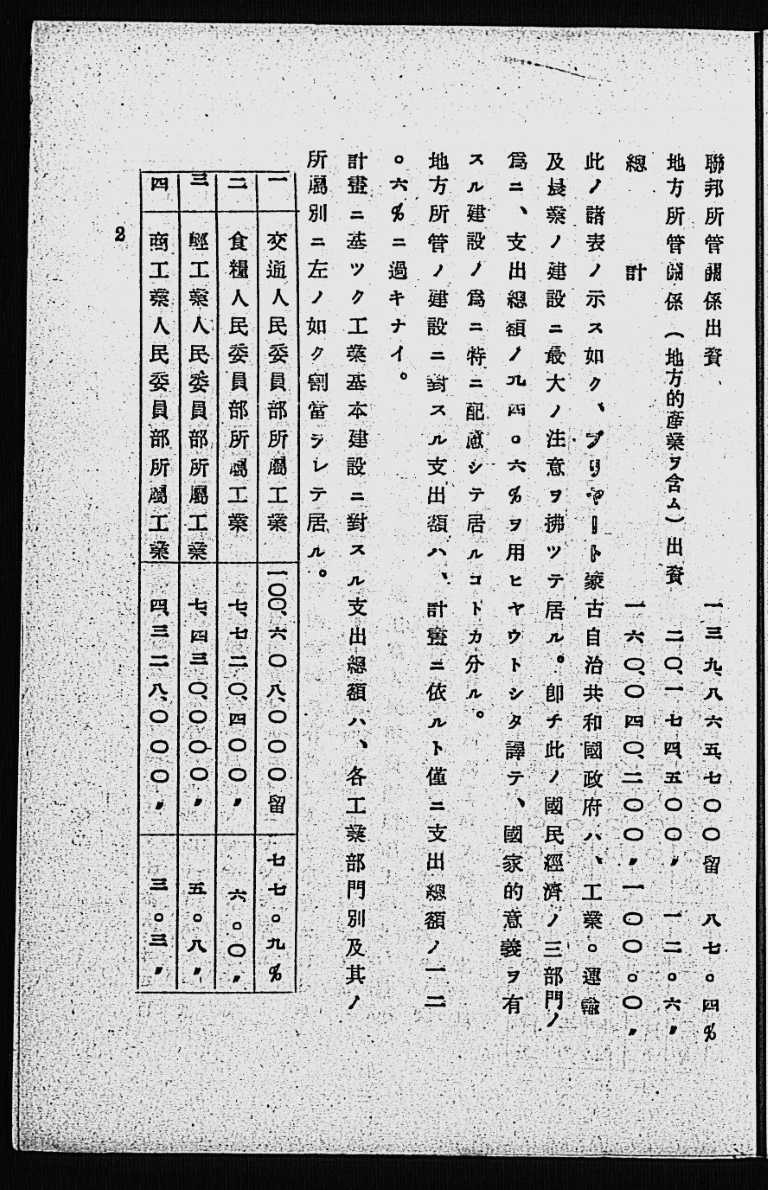 聯邦所管關係出資、 一三九、八六五、七〇〇留 八七。四%
地方所管關係（地方的產業ヲ含ム）出資 二〇、一七四、五〇〇〃 一二。六〃
總計 一六〇、〇四〇、二〇〇〃 一〇〇。〇〃
此ノ諸表ノ示ス如ク、ブリヤート蒙古自治共和國政府ハ、工業。運輸
及農業ノ建設ニ最大ノ注意ヲ拂ツテ居ル。卽チ此ノ國民經濟ノ三部門ノ
爲ニ、支出總額ノ九四。六%ヲ用ヒヤウトシタ譯テ、國家的意義ヲ有
スル建設ノ爲ニ特ニ配慮シテ居ルコトカ分ル。
地方所管ノ建設ニ對スル支出額ハ、計畫ニ依ルト僅ニ支出總額ノ一二
。六%ニ過キナイ。
計畫ニ基ツク工業基本建設ニ對スル支出總額ハ、各工業部門別及其ノ
所屬別ニ左ノ如ク割當ラレテ居ル。
一 交通人民委員部所屬工業 一〇〇、六〇八、〇〇〇留 七七。九%
二 食糧人民委員部所屬工業 七、七二〇、四〇〇〃 六。〇〃
三 輕工業人民委員部所屬工業 七、四三〇、〇〇〇〃 五。八〃
四 商工業人民委員部所屬工業 四、三二八、〇〇〇〃 三。三〃
2